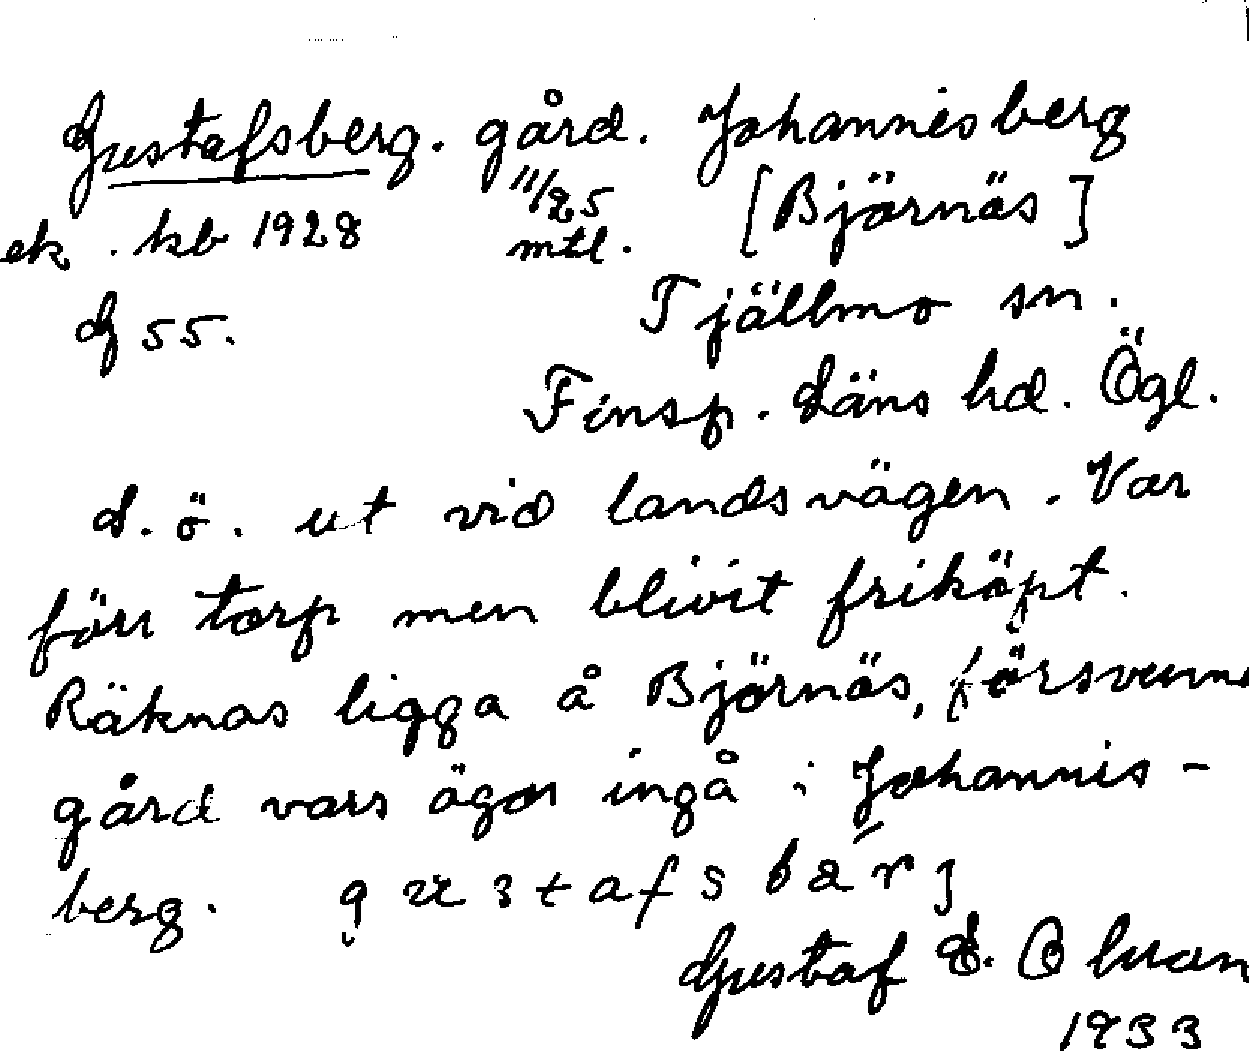 Gustafsberg. gård. Johannisberg
ek. kb 1928 11/25 mtl. [Björnäs]
G 55. Tjällmo sn.
Finsp. läns hd. Ögl.
S. ö. ut vid landsvägen. Var
förr torp men blivit friköpt.
Räknas ligga å Björnäs, försvunnen
gård vars ägor ingå i Johannis-
berg.
Gustaf
1933